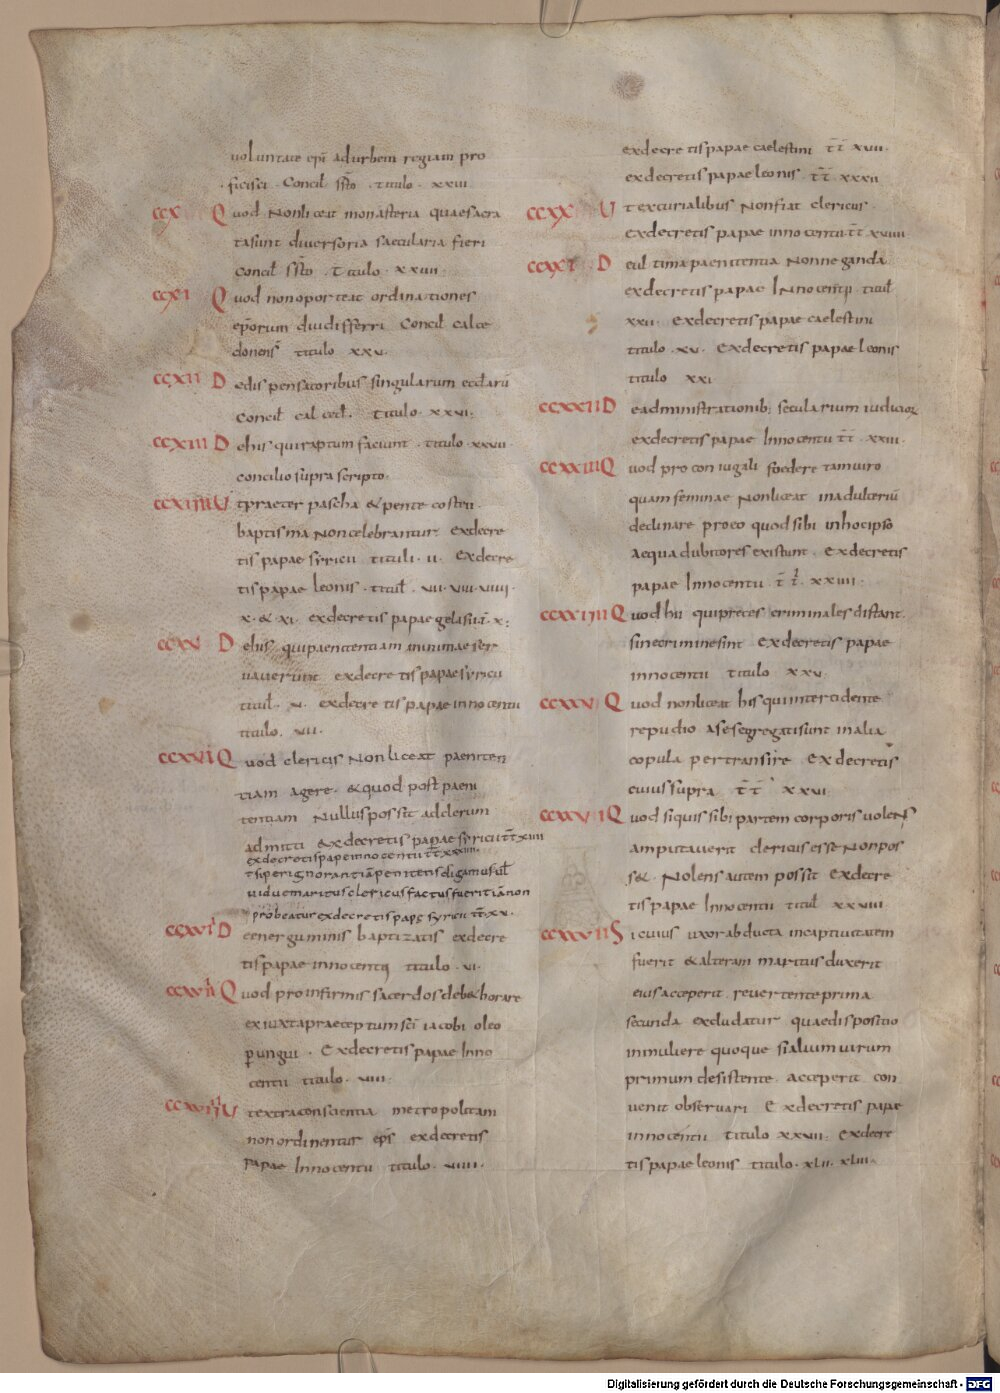 uoluntate epi adurbem regiam pro
ficisci. Concil sṡto. titulo. xxiii
CCX Quod Nonliceat monasteria quaesacra
tasunt diuersoria saecularia fieri
Concil sṡto. Titulo. xxiiii.
CCXI Quod nonoporteat ordinationes
eporum diudifferri Concil calce
donens titulo xxv.
CCXII Dedispensatoribus singularum eccłarū
Concil calced. Titulo. xxvi.
CCXIII Dehis quiraptum faciunt. titulo xxvii.
concilio supra scripto.
CCXIIII Utpraeter pascha & pente costen.
baptisma Noncelebrantur Exdecre
tis papae syricii tituli. ii. Exdecre
tis papae leonis. titul. vii. viii. viiii.
x. & xi. exdecretis papae gelasii ti. x.
CCXV Dehis quipaenitentiam minimae ser
uauerunt exdecretis papae syricii
titul. v. exdecretis papae innocentii
titulo. vii.
CCXVI Quod clericis Nonliceat paeniten
tiam agere. & quod post paeni
tentiam Nullus possit adclerum
admitti exdecretis papae syricii tt xiiii
exdecretis pape innocentii tt xxxiiii.
tsiperignorantiā penitens digamus ul
uiduemaritus clericus factus fuerit iā non
probeatur exdecretis pape syricii tt. xv.
CCXVI Deenerguminis baptizatis exdecre
tis papae innocentii titulo. vi.
CCXVII Quod proinfirmis sacerdos deb& horare
exiuxta praeceptum sci iacobi oleo
pungui. Exdecretis papae Inno
centii titulo. viii.
CCXVIII Utextraconscientia metropolitani
non ordinentur eps exdecretis
papae Innocentii titulo. viiii.
exdecretis papae caelestini tt xvii.
exdecretis papae leonis tt xxxii
CCXX Utexcurialibus Nonfiat clericus
Exdecretis papae innocentii tt xviiii
CCXXI Deul tima paenitentia Nonneganda.
exdecretis papae Innocentii. titul
xxii. Exdecretis papae caelestini
titulo. xv. Exdecretis papae leonis
titulo xxi
CCXXII Deadministrationib; secularium iudicior
exdecretis papae Innocentii tt. xxiii.
CCXXIII Quod pro coniugali foedere tamuiro
quam feminae Nonliceat inadulteriū
declinare proeo quod sibi inhocipso
aequa dubitores existunt. Exdecretis
papae Innocentii tt. xxiiii.
CCXXIIII Quod hii quipreces criminales dictant.
sinecriminesint Exdecretis papae
innocentii titulo xxv.
CCXXV Quod nonliceat his quiintercedente
repudio asesegregatisunt inalia
copula pertransire Exdecretis
cuius supra tt xxvi
CCXXVI Quod siquis sibi partem corporis uolens
amputauerit clericus esse Nonpos
s&. Nolens autem possit Exdecre
tis papae Innocentii titul xxviii
CCXXVII Sicuius uxorabducta incaptiuitatem
fuerit & alteram maritus duxerit
eius acceperit. reuertente prima
secunda excludatur quaedispositio
inmuliere quoque si alium uirum
primum desistente. acceperit con
uenit obseruari Exdecretis pape
innocentii titulo xxvii. exdecre
tis papae leonis titulo. xlii. xliii.
Digitalisierung gefördert durch die Deutsche Forschungsgemeinschaft - DFG